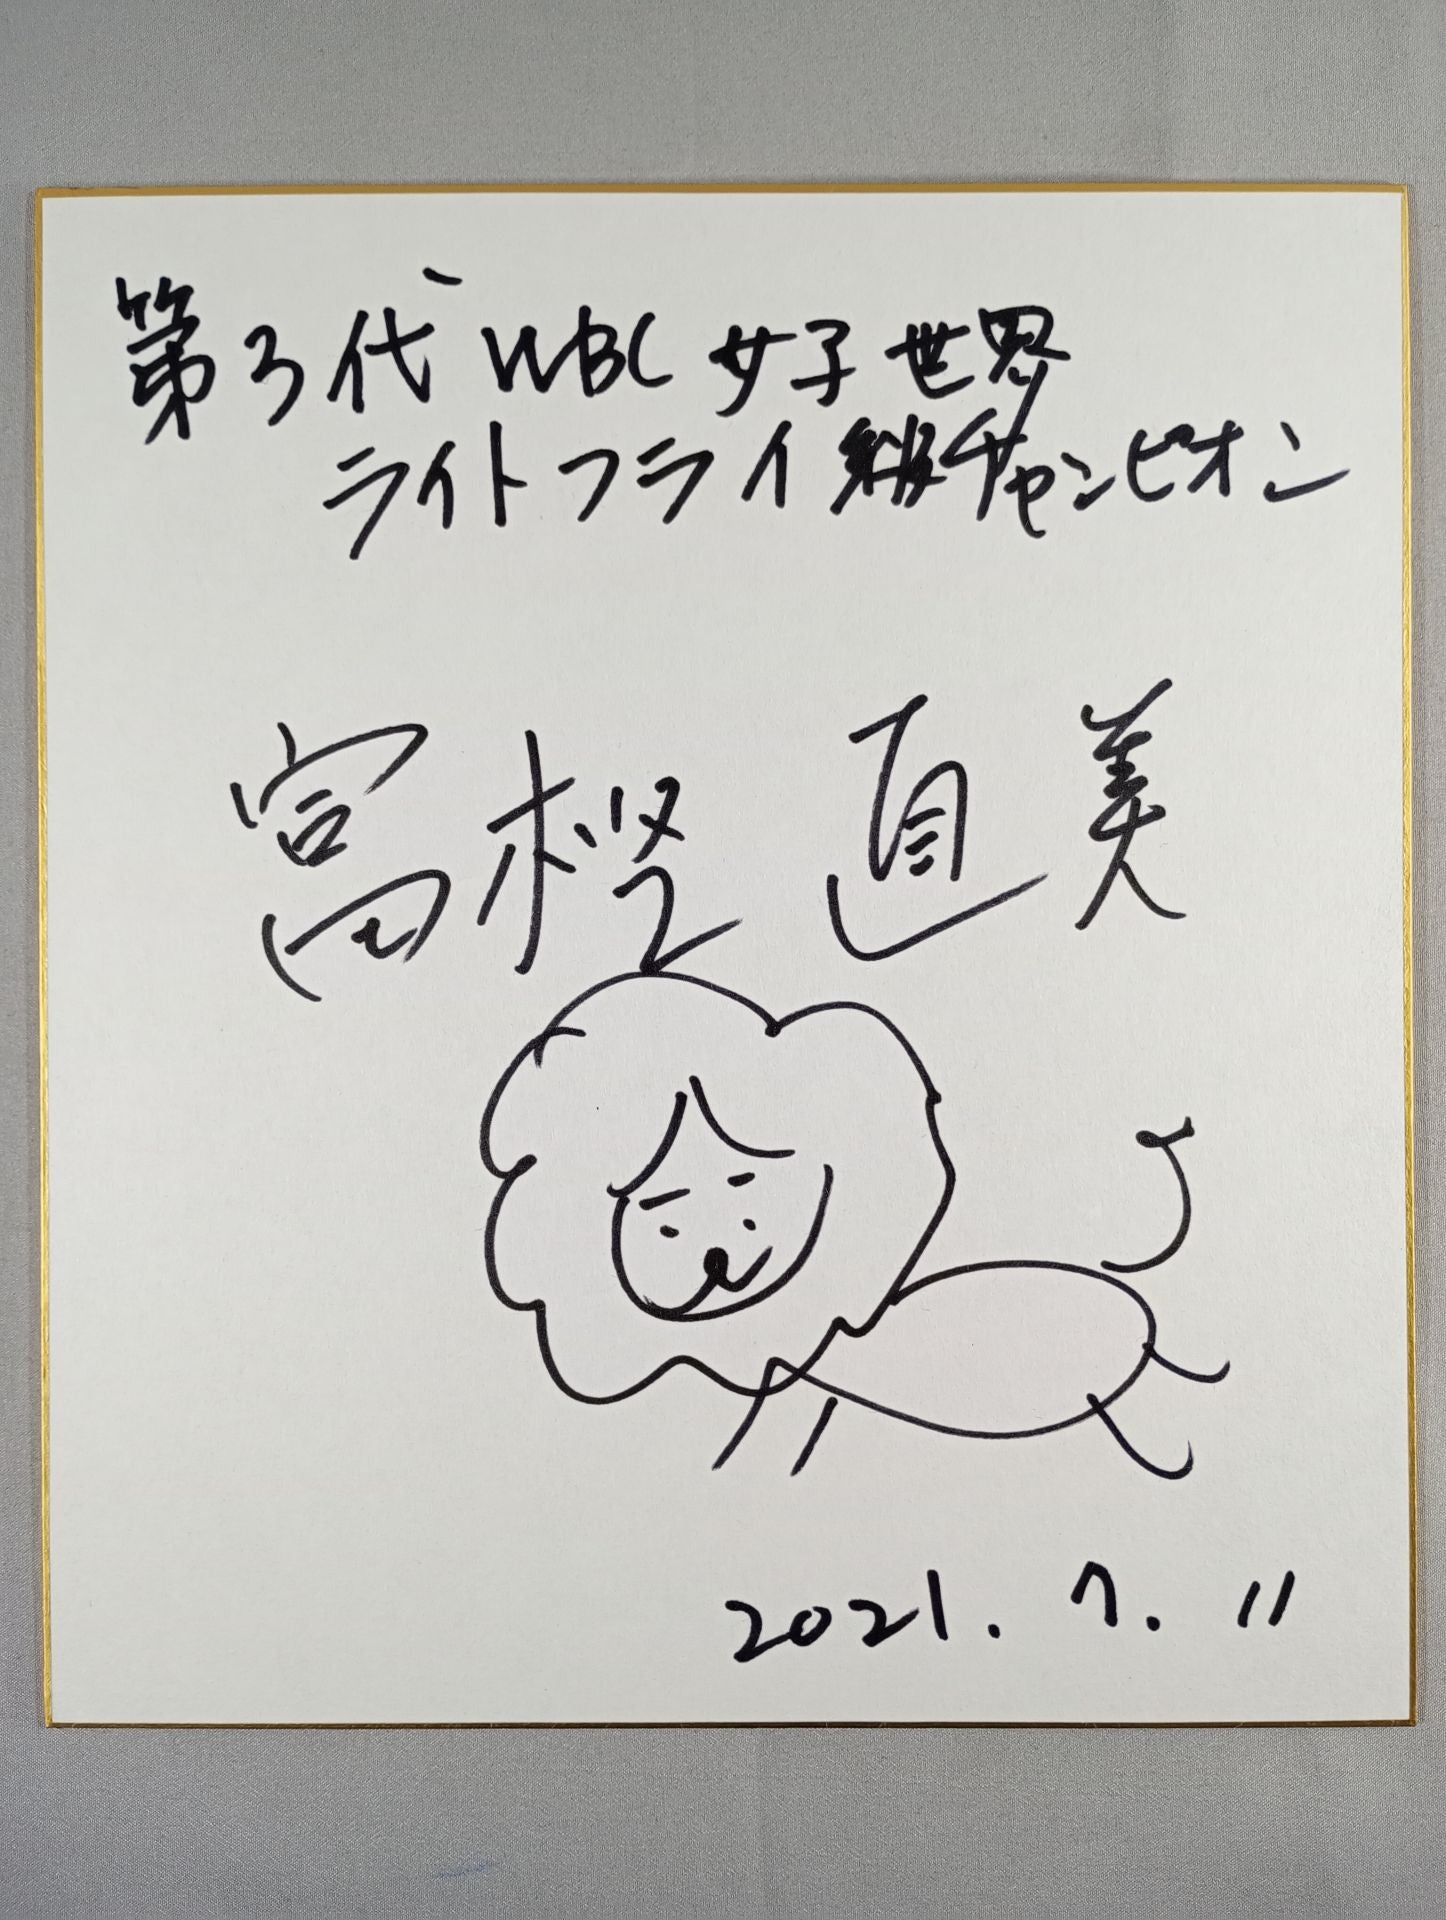 第3代 WBC 女子世界
ライトフライ級チャンピオン
富樫 直美
2021. 7. 11